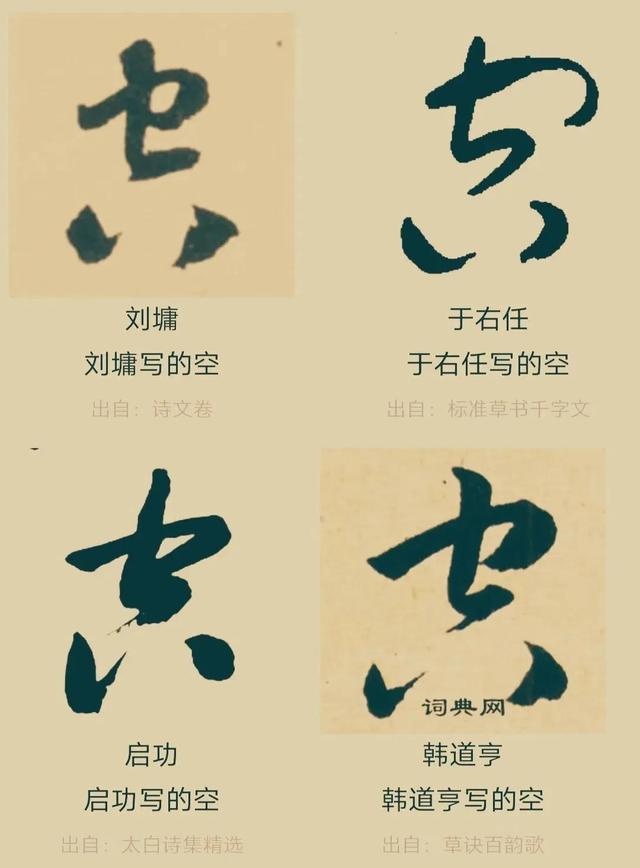 空
刘墉
刘墉写的空
出自：诗文卷
空
于右任
于右任写的空
出自：标准草书千字文
空
启功
启功写的空
出自：太白诗集精选
空
词典网
韩道亨
韩道亨写的空
出自：草诀百韵歌